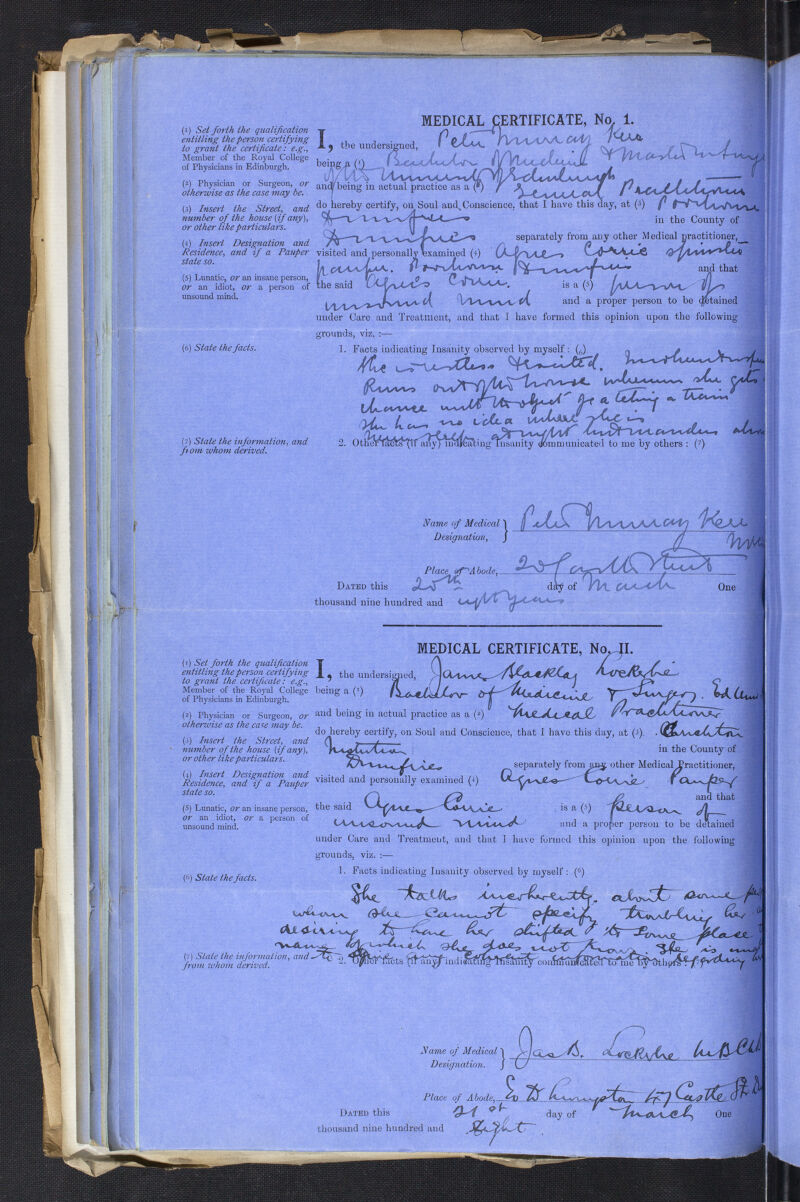 MEDICAL CERTIFICATE, No. 1.
(1) Set forth the qualification
entitling the person certifying
to grant the certificate: e.g.,
Member of the Royal College
of Physicians in Edinburgh.
(2) Physician or Surgeon, or
otherwise as the case may be.
(3) Insert the Street, and
number of the house (if any),
or other like particulars.
(4) Insert Designation and
Residence, and if a Pauper
state so.
(5) Lunatic, or an insane person,
or an idiot, or a person of
unsound mind.
(6) State the facts.
(7) State the information, and
from whom derived.
I, the undersigned, Peter Murray Kerr
being a (1) Bachelor of Medicine & Master in Surgery
of the University of Edinburgh
and being in actual practice as a (2) General Practitioner
do hereby certify, on Soul and Conscience, that I have this day, at (3) Poorhouse
Dumfries in the County of
Dumfries separately from any other Medical practitioner,
visited and personally examined (4) Agnes Corrie spinster
pauper. Poorhouse Dumfries and that
the said Agnes Corrie. is a (5) person of
unsound mind and a proper person to be detained
under Care and Treatment, and that I have formed this opinion upon the following
grounds, viz. :—
1. Facts indicating Insanity observed by myself: (6)
She is restless & excited.
Runs out of the house whenever she gets
chance with the object of catching a train
She has no idea where she is
Never sleeps at night but wanders
2. Other facts (if any) indicating Insanity communicated to me by others: (7)
Name of Medical Designation, Peter Murray Kerr
Place of Abode, 20 Castle Street
DATED this 20th day of March One
thousand nine hundred and eight years
MEDICAL CERTIFICATE, No. II.
(1) Set forth the qualification
entitling the person certifying
to grant the certificate: e.g.,
Member of the Royal College
of Physicians in Edinburgh.
(2) Physician or Surgeon, or
otherwise as the case may be.
(3) Insert the Street, and
number of the house (if any),
or other like particulars.
(4) Insert Designation and
Residence, and if a Pauper
state so.
(5) Lunatic, or an insane person,
or an idiot, or a person of
unsound mind.
(6) State the facts.
(7) State the information, and
from whom derived.
I, the undersigned, James Blacklay Lockerbie
being a (1) Bachelor of Medicine & Surgery. Ed Univ
and being in actual practice as a (2) Medical Practitioner
do hereby certify, on Soul and Conscience, that I have this day, at (3) Crichton
Institution in the County of
Dumfries separately from any other Medical Practitioner,
visited and personally examined (4) Agnes Corrie Pauper
and that
the said Agnes Corrie is a (5) person of
unsound mind and a proper person to be detained
under Care and Treatment, and that I have formed this opinion upon the following
grounds, viz. :—
1. Facts indicating Insanity observed by myself: (6)
She talks incoherently. about some
whom she cannot specify troubling her
desiring to have her shifted to some place
name of which she does not know. She is
to give any coherent information regarding
2. Other facts (if any) indicating Insanity communicated to me by others: (7)
Name of Medical Designation. Jas B. Lockerbie M.B Ch.B
Place of Abode, 47 Castle St
DATED this 21st day of March One
thousand nine hundred and Eight.